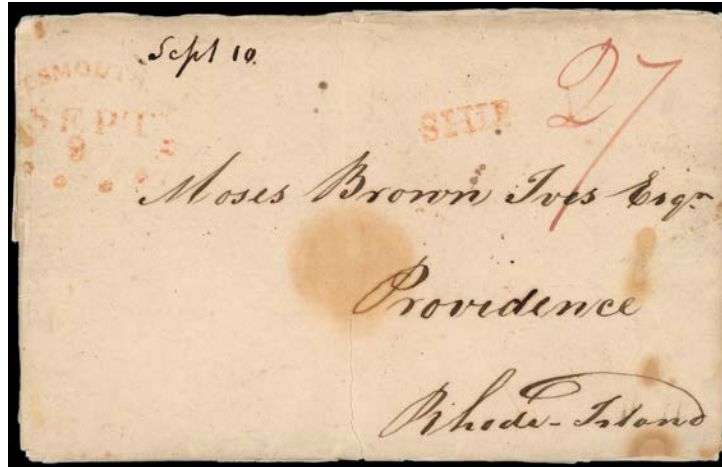 Sept 10.
SMOUTH
SEPT
9
SHIP
27
Moses Brown Ives Esqr
Providence
Rhode-Island